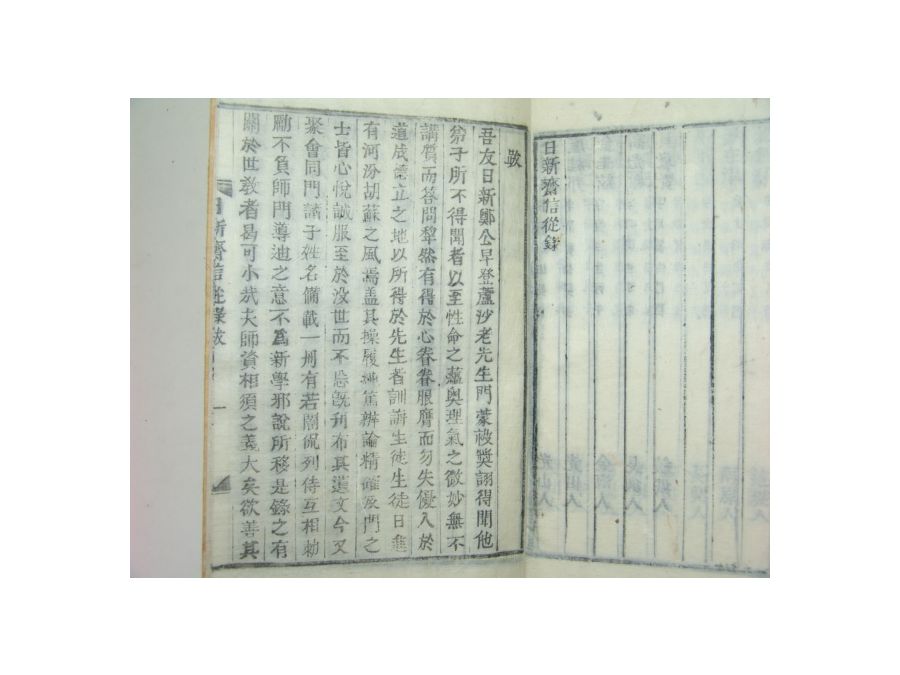 日新齋信從錄
跋
吾友日新鄭公早登蘆沙老先生門蒙被奬詡得聞他
弟子所不得聞者以至性命之蘊奧理氣之微妙無不
講質而答問犂然有得於心眷眷服膺而勿失優入於
道成德立之地以所得於先生者訓誨生徒生徒日進
有河汾胡蘇之風焉盖其操履 篤辨論精確及門之
士皆心悅誠服至於没世而不忘旣刊布其遺文今又
聚會同門諸子姓名備載一册有若誾侃列侍互相勅
勵不負師門導迪之意不爲新學邪說所移是錄之有
關於世敎者曷可小哉夫師資相須之義大矣欲善其
日新齋信從錄跋 一